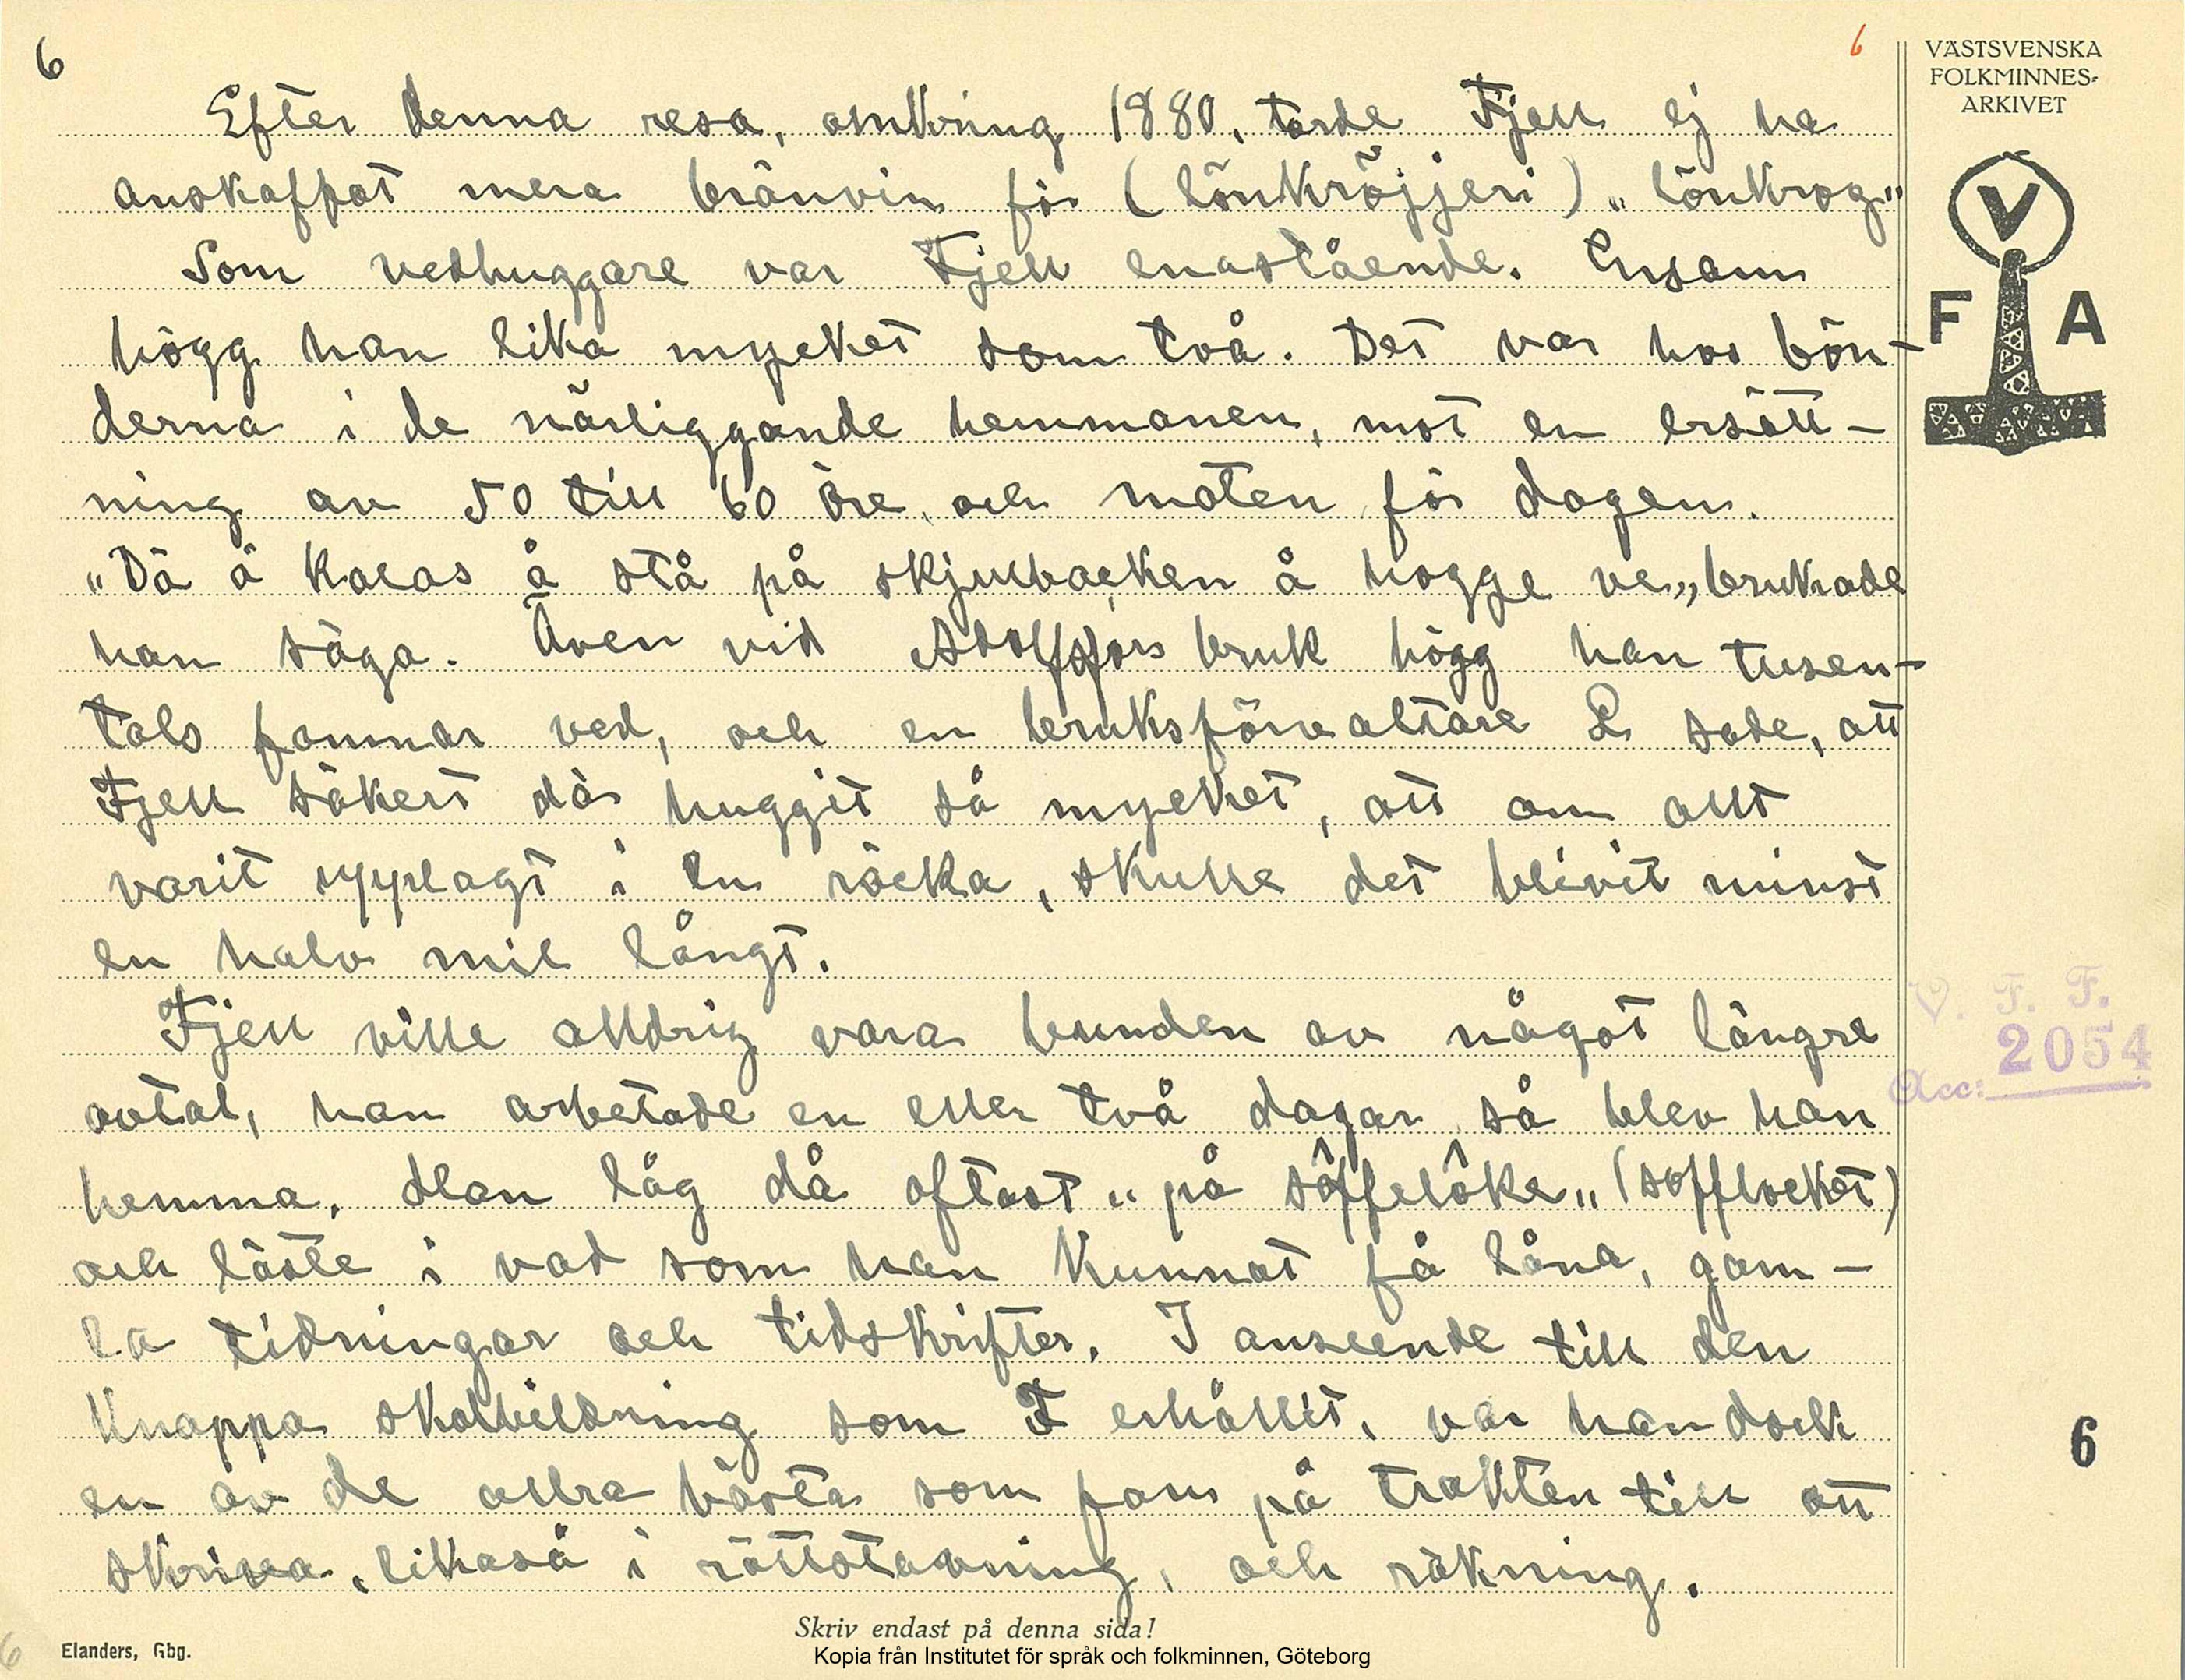 6
6
VÄSTSVENSKA
FOLKMINNES-
ARKIVET
V
F A
Efter denna resa, omkring 1880, torde Fjell ej ha
anskaffat mera bränvin för (lönkröjjeri) „lönkrog"
Som vedhuggare var Fjell enastående. Ensam
högg han lika mycket som två. Det var hos bön-
derna i de närliggande hemmanen, mot en ersätt-
ning av 50 till 60 öre, och maten för dagen.
„Dä ä kalas å stå på skjulbacken å hogge ve„ brukade
han säga. Även vid Adolfsfors bruk högg han tusen-
tals famnar ved, och en bruksförvaltare L sade, att
Fjell säkert där huggit så mycket, att om allt
varit upplagt i en räcka, skulle det blivit minst
en halv mil långt.
Fjell ville alldrig vara bunden av något längre
avtal, han arbetade en eller två dagar så blev han
hemma. Han låg då oftast „på sôffelôke„ (sofflocket)
och läste i vad som han kunnat få låna, gam-
la tidningar och tidskrifter. I anseende till den
knappa skolbildning som F erhållit, var han dock
en av de allra bästa som fans på trakten till att
skriva, likaså i rättstavning, och räkning.
V. F. F.
Acc: 2054
6
Skriv endast på denna sida!
Elanders, Gbg.
6
Kopia från Institutet för språk och folkminnen, Göteborg